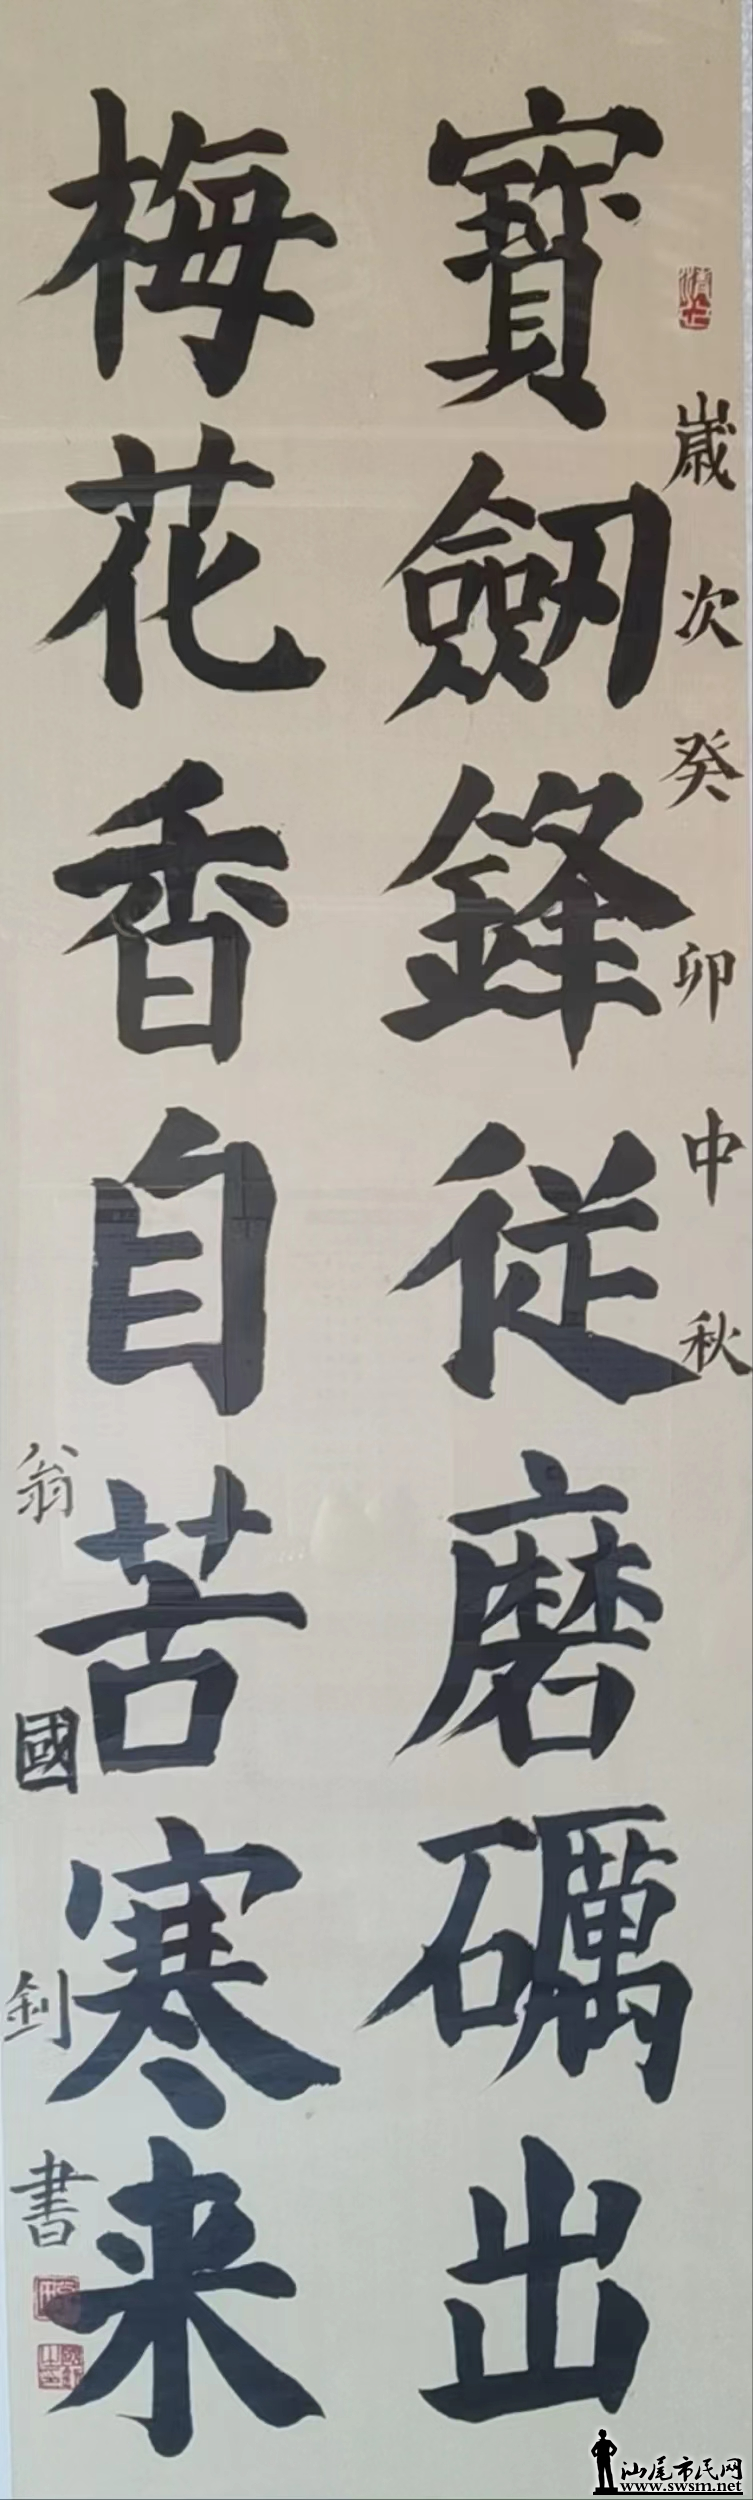 歲次癸卯中秋
寶劒鋒従磨礪出
梅花香自苦寒来
翁國釗書
汕尾市民网
www.swsm.net